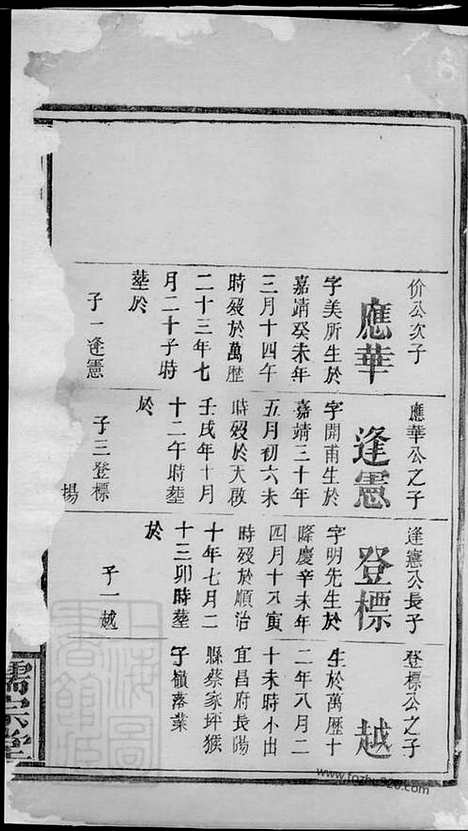 价公次子
應華
字美所生於
嘉靖癸未年
三月十四午
時殁於萬歴
二十三年七
月二十子時
塟於
子一逢憲
應華公之子
逢憲
字開甫生於
嘉靖三十年
五月初六未
時殁於天啟
壬戌年十月
十二午時塟
於
子三登標
楊
逢憲公長子
登標
字明先生於
隆慶辛未年
四月十八寅
時殁於順治
十年七月二
十三卯時塟
於
子一越
登標公之子
越
生於萬歴十
二年八月二
十未時小出
宜昌府長陽
縣蔡家坪猴
子嶺落業
www.fozhu920.com